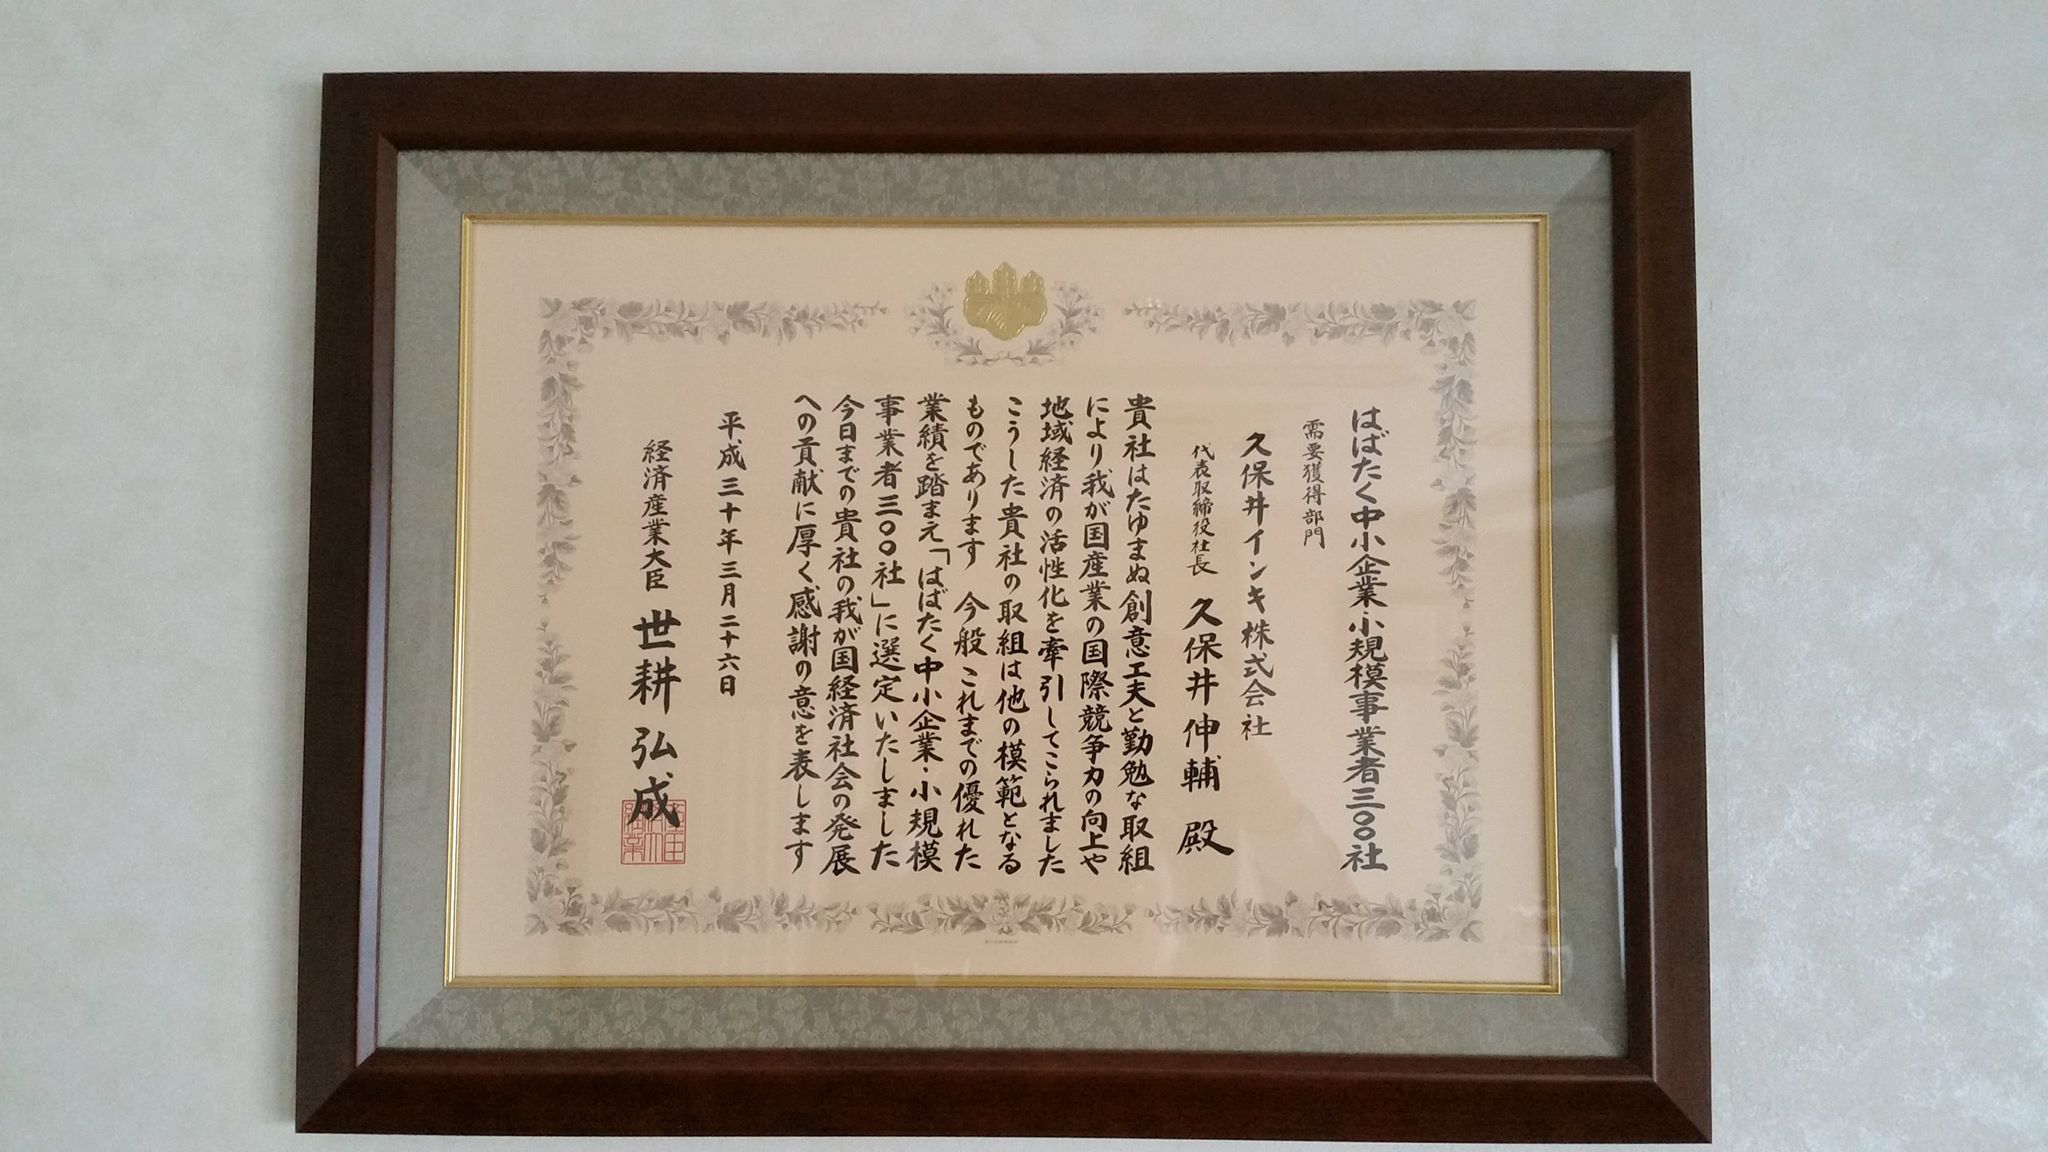 はばたく中小企業・小規模事業者三〇〇社
需要獲得部門
久保井インキ株式会社
代表取締役社長 久保井伸輔 殿
貴社はたゆまぬ創意工夫と勤勉な取組
により我が国産業の国際競争力の向上や
地域経済の活性化を牽引してこられました
こうした貴社の取組は他の模範となる
ものであります 今般これまでの優れた
業績を踏まえ「はばたく中小企業・小規模
事業者三〇〇社」に選定いたしました
今日までの貴社の我が国経済社会の発展
への貢献に厚く感謝の意を表します
平成三十年三月二十六日
経済産業大臣 世耕弘成